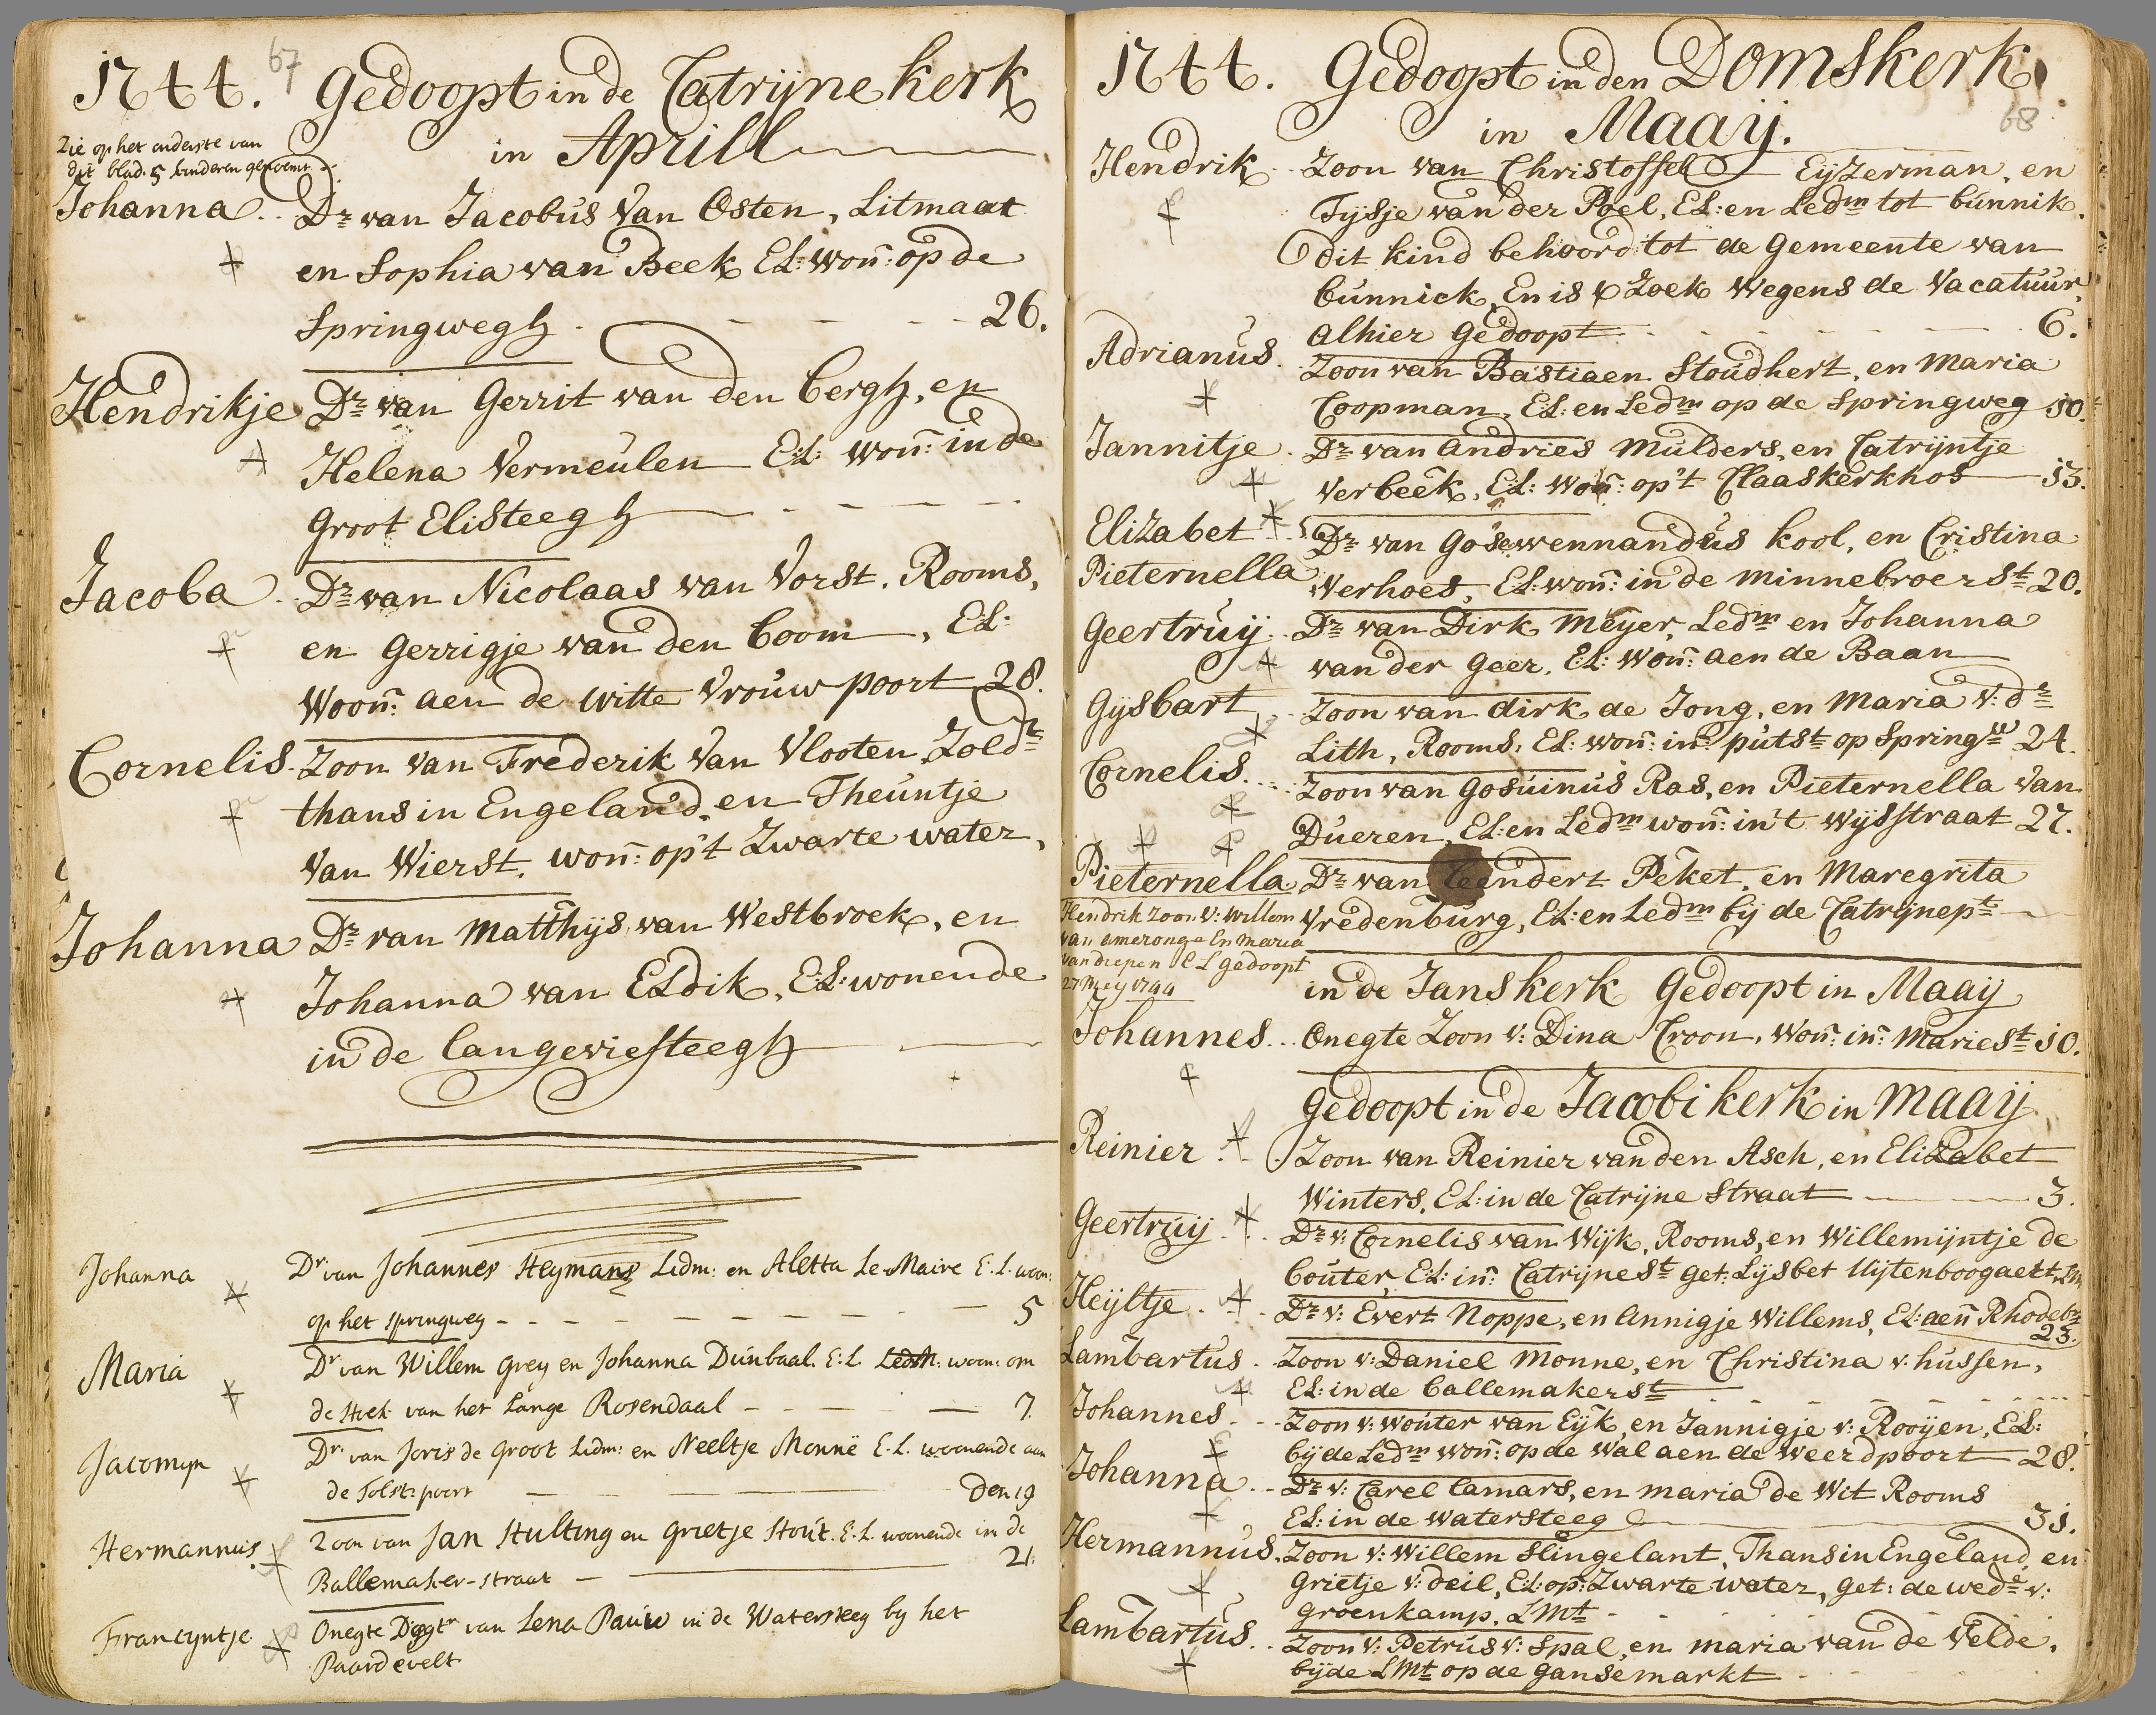 67
1744. Gedoopt in de Catrijne kerk
in Aprill
Zie op het onderste van
dit blad. 5 kinderen genoemt
Johanna. Dr van Jacobus Van Osten, Litmaat
en Sophia van Beek EL: won: op de
Springwegh. 26.
Hendrikje Dr van Gerrit van den bergh, en
Helena Vermeulen EL: won: in de
Groot Elisteegh
Jacoba. Dr van Nicolaas van Vorst. Rooms,
en Gerrigje van den boom, EL:
Woon: aen de witte Vrouw poort 28.
Cornelis. Zoon van Frederik Van Vlooten Zoldt
thans in Engeland, en Theuntje
Van Wierst. won: op't Zwarte water.
Johanna Dr van Matthijs van Westbroek, en
Johanna van ELdik, EL: wonende
in de langeviesteegh
Johanna Dr van Johannes Heymans Lidm: en Aletta Le-Maire E. L. woon:
op het springweg 5
Maria Dr van Willem Grey en Johanna Dunbaal E: L. Ledm: woon: om
de Hoek van het Lange Rosendaal 7.
Jacomyn Dr van Joris de Groot Lidm: en Neeltje Monnë E. L. woonende aan
de Tolst: poort Den 19
Hermannus. Zoon van Jan Stulting en Grietje Stout. E. L. woonende in de
Ballemaker-straat 21.
Francyntje Onegte Dogtr van Lena Pauw in de Watersteeg by het
Paardevelt
68
1744. Gedoopt in den Domskerk
in Maaij.
Hendrik. Zoon van Christoffel Eijzerman, en
Tysje van der Poel, EL: en Ledm tot bunnik.
dit kind behoord tot de Gemeente van
bunnick, En is Zoek Wegens de Vacatuur,
alhier Gedoopt 6.
Adrianus. Zoon van Bastiaen Stoudhert, en Maria
Coopman, EL: en Ledm op de Springweg 10.
Jannitje. Dr van Andries Mulders, en Catrijntje
Verbeek, EL: Won: op't Claaskerkhof 13.
Elizabet Dr van Gosewennandus kool, en Cristina
Pieternella Verhoef, EL: won: in de minnebroer St 20.
Geertruij. Dr van Dirk Meyer, Ledm en Johanna
van der Geer, EL: Won: aen de Baan
Gysbart Zoon van dirk de Jong, en Maria V: dr
Lith, Rooms: EL: won: in putst op Springw 24.
Cornelis. Zoon van Gosuinus Ras, en Pieternella Van
Dueren, EL: en Ledm won: in't Wijsstraat 27.
Pieternella Dr van leendert Peket, en Maregrita
Vredenburg, EL: en Ledm bij de Catrijnept
Hendrik zoon v: Willem
van ameronge En maria
van diepen E L gedoopt
27 Mey 1744
in de Janskerk Gedoopt in Maaij
Johannes. Onegte Zoon v: Dina Croon, Won: in: Mariest 10.
Gedoopt in de Jacobi kerk in Maaij
Reinier. Zoon van Reinier van den Asch, en Elizabet
Winters, EL: in de Catrijne Straat 3.
Geertruij. Dr v: Cornelis van Wijk, Rooms, en Willemijntje de
bouter, EL: in: Catrijnest get: Lijsbet Uijtenboogaert, Lm
Heijltje. Dr v: Evert Noppe, en Annigje Willems, EL: aen Rhodebr
23.
Lambartus. Zoon v: Daniel Monne, en Christina v: hussen,
EL: in de ballemakerst
Johannes. Zoon v: wouter van Eijk, en Jannigje v: Rooijen, EL:
bijde Ledm won: op de Wal aen de weerdpoort 28.
Johanna. Dr v: Carel Camars, en maria de Wit Rooms
EL: in de watersteeg 31.
Hermannus. Zoon v: Willem Slingelant, Thans in Engeland, en
Grietje v: deil, EL: op: Zwarte water, get: de wede v:
Groenkamp, LMt
Lambartus. Zoon v: Petrus v: Spal, en maria van de Velde,
bijde LMt op de Gansemarkt